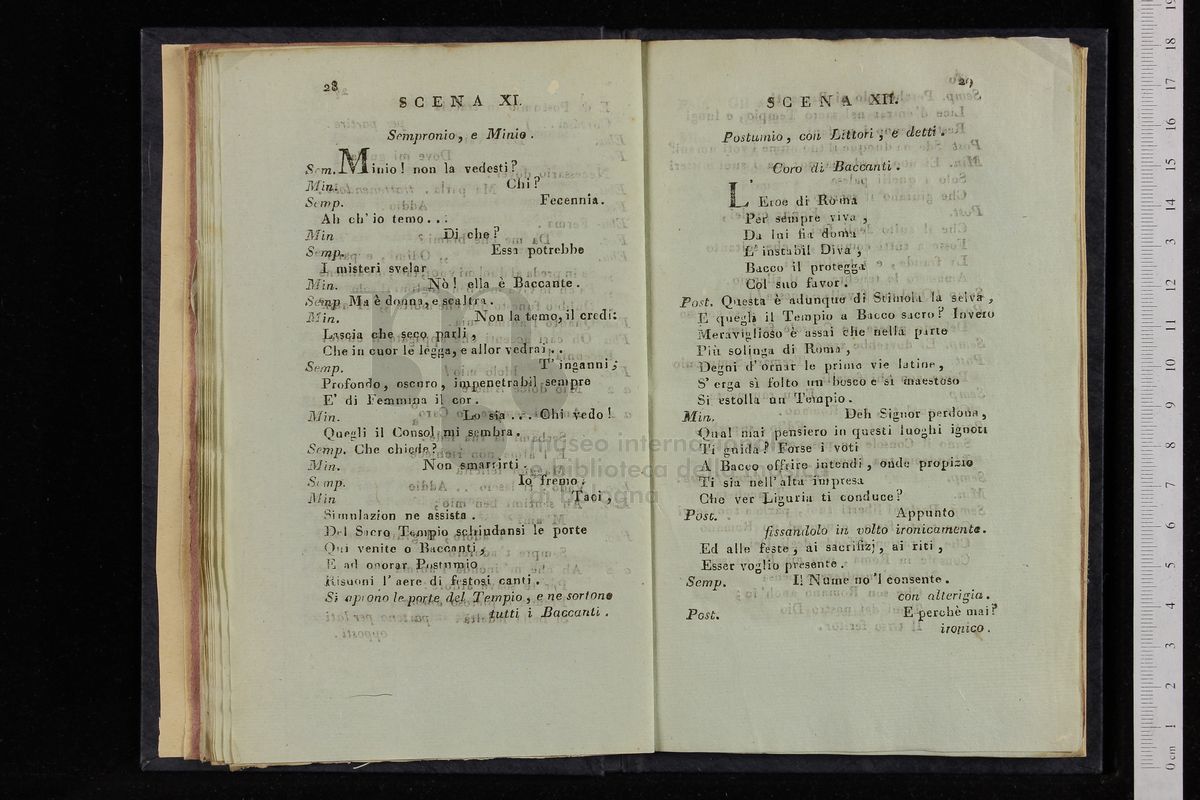 28
SCENA XI.
Sempronio, e Minio.
Sem. Minio! non la vedesti?
Min. Chi?
Semp. Fecennia.
Ah ch'io temo...
Min Di che?
Semp. Essa potrebbe
I misteri svelar
Min. Nò! ella è Baccante.
Semp Ma è donna, e scaltra.
Min. Non la temo, il credi:
Lascia che seco parli,
Che in cuor le legga, e allor vedrai..
Semp. T'inganni;
Profondo, oscuro, impenetrabil sempre
E' di Femmina il cor.
Min. Lo sia... Ohi vedo!
Quegli il Consol mi sembra.
Semp. Che chiede?
Min. Non smarrirti.
Semp. Io fremo.
Min Taci,
Simulazion ne assista.
Del Sacro Tempio schiudansi le porte
Qui venite o Baccanti,
E ad onorar Postumio
Risuoni l'aere di festosi canti.
Si aprono le porte del Tempio, e ne sortono
tutti i Baccanti.
29
SCENA XII.
Postumio, con Littori, e detti.
Coro di Baccanti.
L'Eroe di Roma
Per sempre viva,
Da lui fia doma
L'instabil Diva,
Bacco il protegga
Col suo favor.
Post. Questa è adunque di Stimola la selva,
E quegli il Tempio a Bacco sacro? Invero
Meraviglioso è assai che nella parte
Più solinga di Roma,
Degni d'ornar le prime vie latine,
S'erga sì folto un bosco e sì maestoso
Si estolla un Tempio.
Min. Deh Signor perdona,
Qual mai pensiero in questi luoghi ignoti
Ti guida? Forse i voti
A Bacco offrire intendi, onde propizio
Ti sia nell'alta impresa
Che ver Liguria ti conduce?
Post. Appunto
fissandolo in volto ironicamente.
Ed alle feste, ai sacrifizj, ai riti,
Esser voglio presente.
Semp. Il Nume no'l consente.
con alterigia.
Post. E perchè mai?
ironico.
museo internazionale
e biblioteca della musica
di bologna